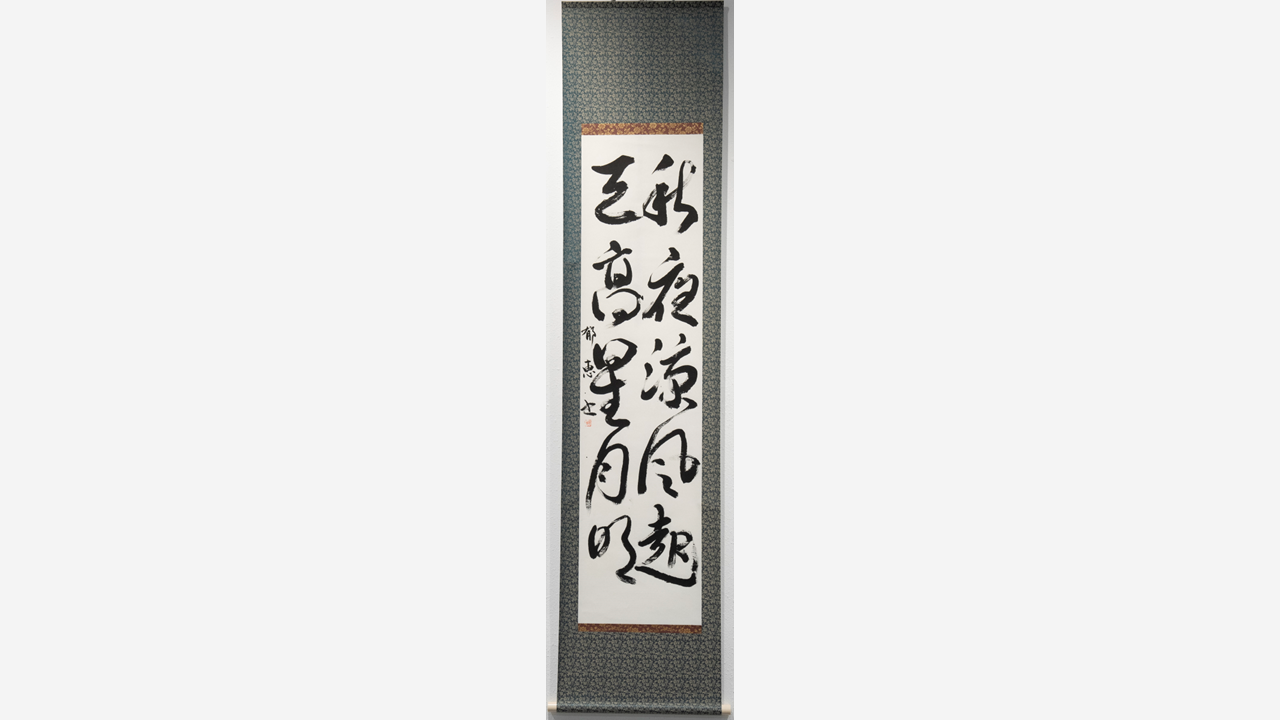 秋夜涼風起
天高星月明
郁恵書